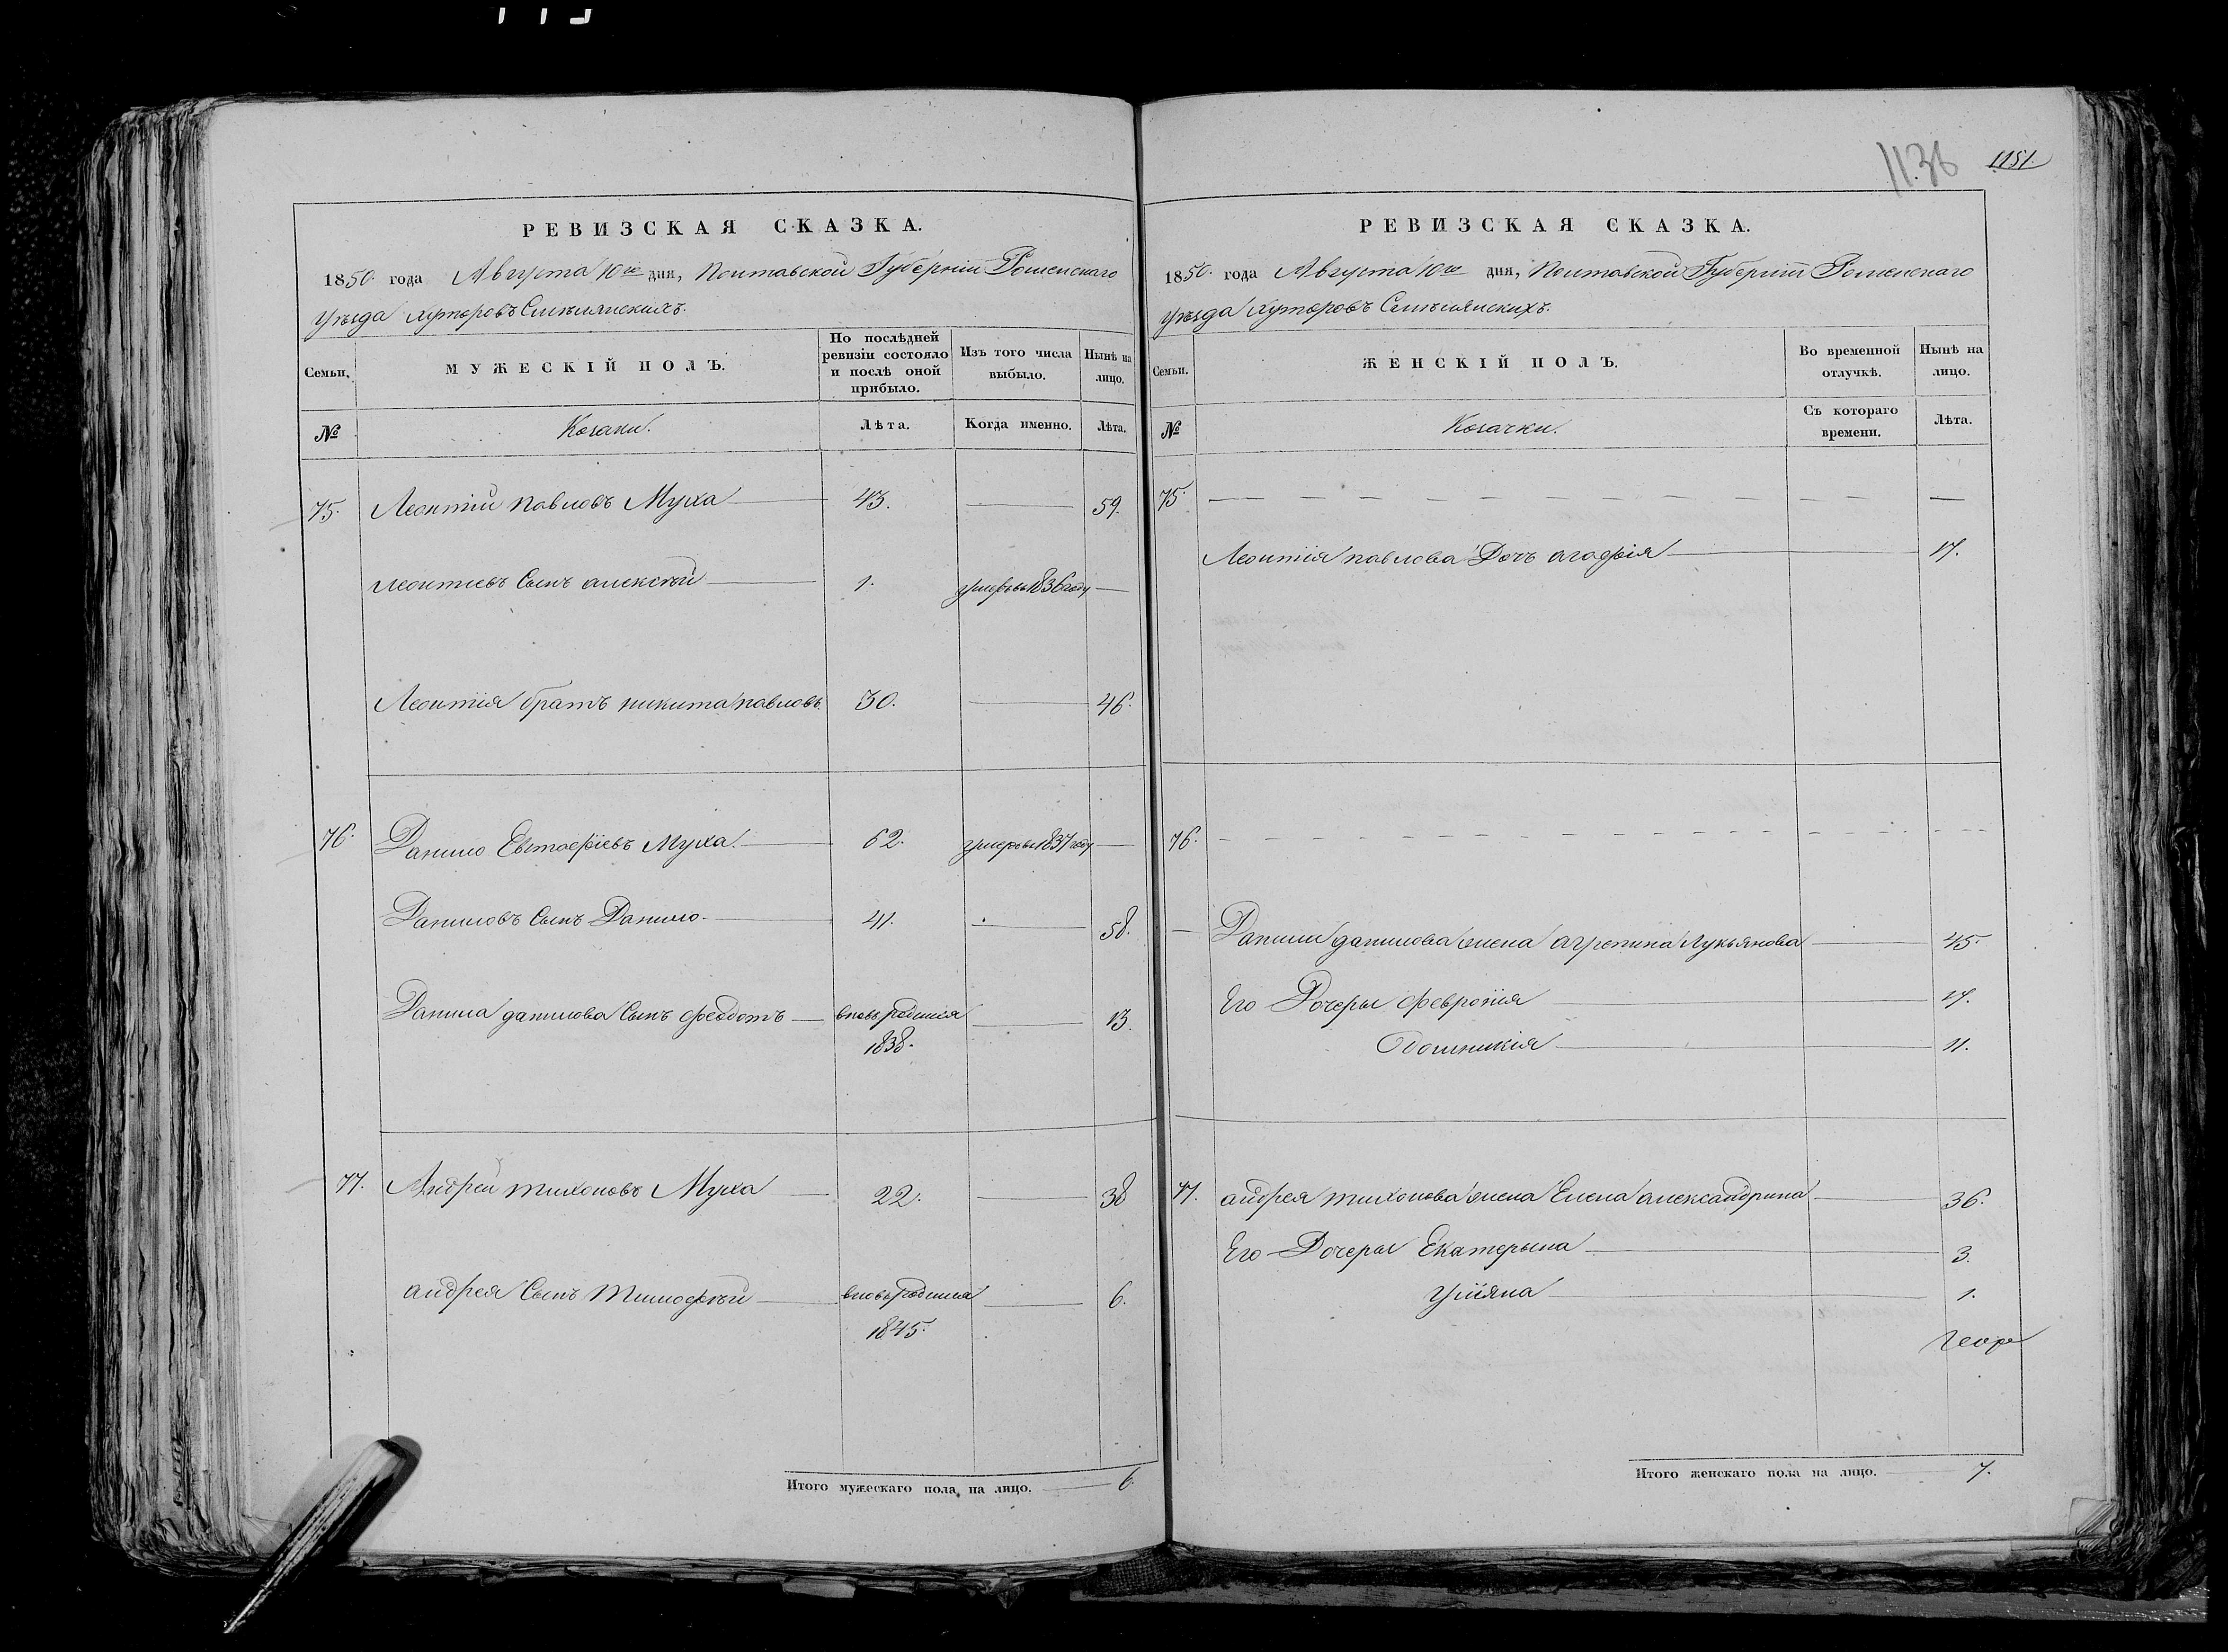 1136 1151.
РЕВИЗСКАЯ СКАЗКА.
1850. года Августа 10го дня, Полтавской Губерніи Роменскаго
уѣзда хуторовъ
Семьи. МУЖЕСКІЙ ПОЛЪ. По послѣдней ревизіи состояло и послѣ оной прибыло. Изъ того числа выбыло. Нынѣ на лицо.
№ Козаки. Лѣта. Когда именно. Лѣта.
75. Леонтій павловъ Муха 43. 59.
Леонтіевъ Сынъ алексѣй 1. умеръ въ 1836 году
Леонтія братъ никита павловъ. 30. 46.
76. Данило Евтаефіевъ Муха. 62. умеръ въ 1837 году
Даниловъ Сынъ Данило. 41. 58.
Данила данилова Сынъ феодотъ вновь родился 13.
1838.
77. Андрей тихоновъ Муха 22. 38
андрея Сынъ тимофѣй вновь родился 6.
1845.
Итого мужескаго пола на лицо. 6.
РЕВИЗСКАЯ СКАЗКА.
1850. года Августа 10го дня, Полтавской Губерніи Роменскаго
уѣзда хуторовъ
Семьи. ЖЕНСКІЙ ПОЛЪ. Во временной отлучкѣ. Нынѣ на лицо.
№ Козачки. Съ котораго времени. Лѣта.
75.
Леонтія павлова Дочь агафія 17.
76.
Данили данилова жена агрепина Лукьянова 45.
Его Дочеры февронія 17.
Домникія 11.
77. андрея тихонова жена Елена александрина 36.
Его Дочеры Екатерына 3.
уліяна 1.
Итого женскаго пола на лицо. 7.